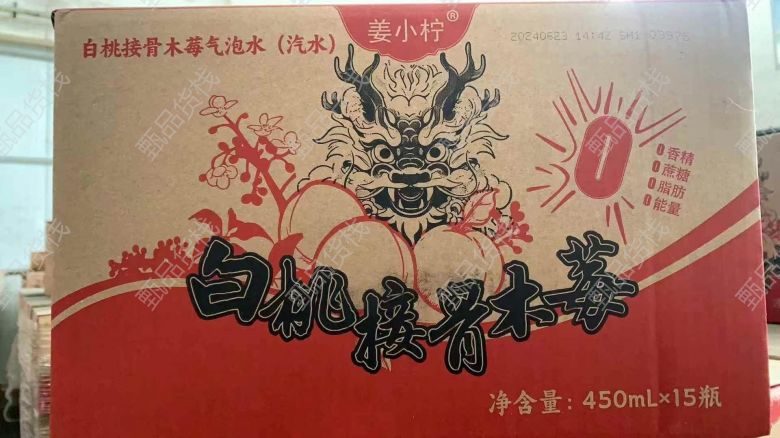 姜小柠®
白桃接骨木莓气泡水（汽水）
20240623 14:42 SH1 03976
0香精
0蔗糖
0脂肪
0能量
0
白桃接骨木莓
净含量：450mL×15瓶
甄品货栈